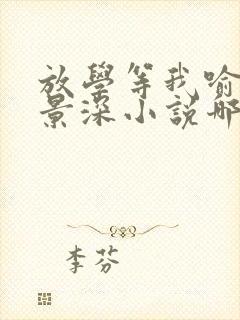 放學等我喻
景深小説哪
李芬